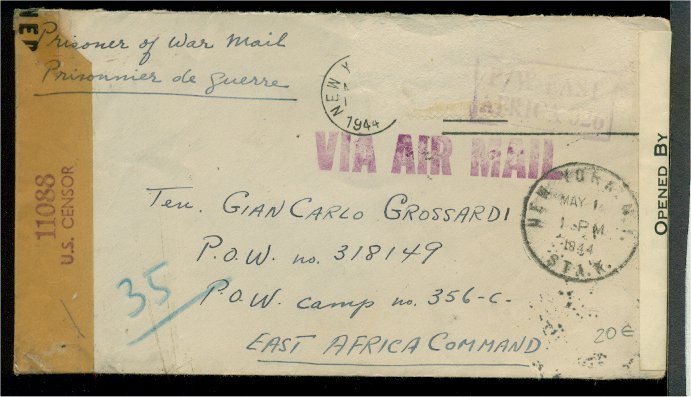 Prisoner of War Mail
Prisonnier de guerre
NEW
1944
VIA AIR MAIL
11088
U.S. CENSOR
OPENED BY
NEW YORK, N.Y.
MAY
PM
1944
STA. K.
Ten. GIANCARLO GROSSARDI
P.O.W. no. 318149
P.O.W. camp no. 356-c.
EAST AFRICA COMMAND
35
20€